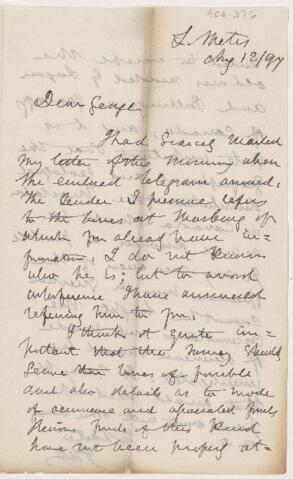 ACC-376
L. Metis
Aug 12/97
Dear George
I had scarcely mailed
my letter of this morning when
the enclosed telegram arrived.
The sender I presume refers
to the bones at Mosburg of
which you already have in-
formation. I do not know
who he is; but to avoid
interference I have answered
referring him to you.
I think it quite im-
portant that the survey should
secure these bones if possible
and also details as to mode
of occurrence and associated fossils
Previous finds of this kind
have not been properly at-